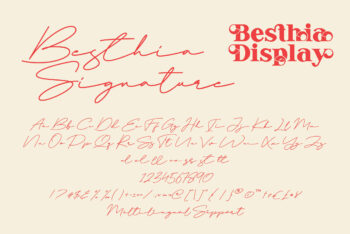 Besthia
Signature
Besthia
Display
Aa Bb Cc Dd Ee Ff Gg Hh Ii Jj Kk Ll Mm
Nn Oo Pp Qq Rr Ss Tt Uu Vv Ww Xx Yy Zz
1234567890
Multilingual Support